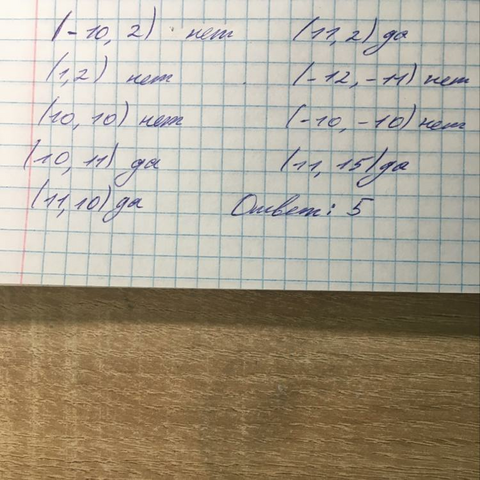 (-10, 2) нет (11, 2) да
(1,2) нет (-12, -11) нет
(10, 10) нет (-10, -10) нет
(10, 11) да (11, 15) да
(11, 10) да Ответ: 5